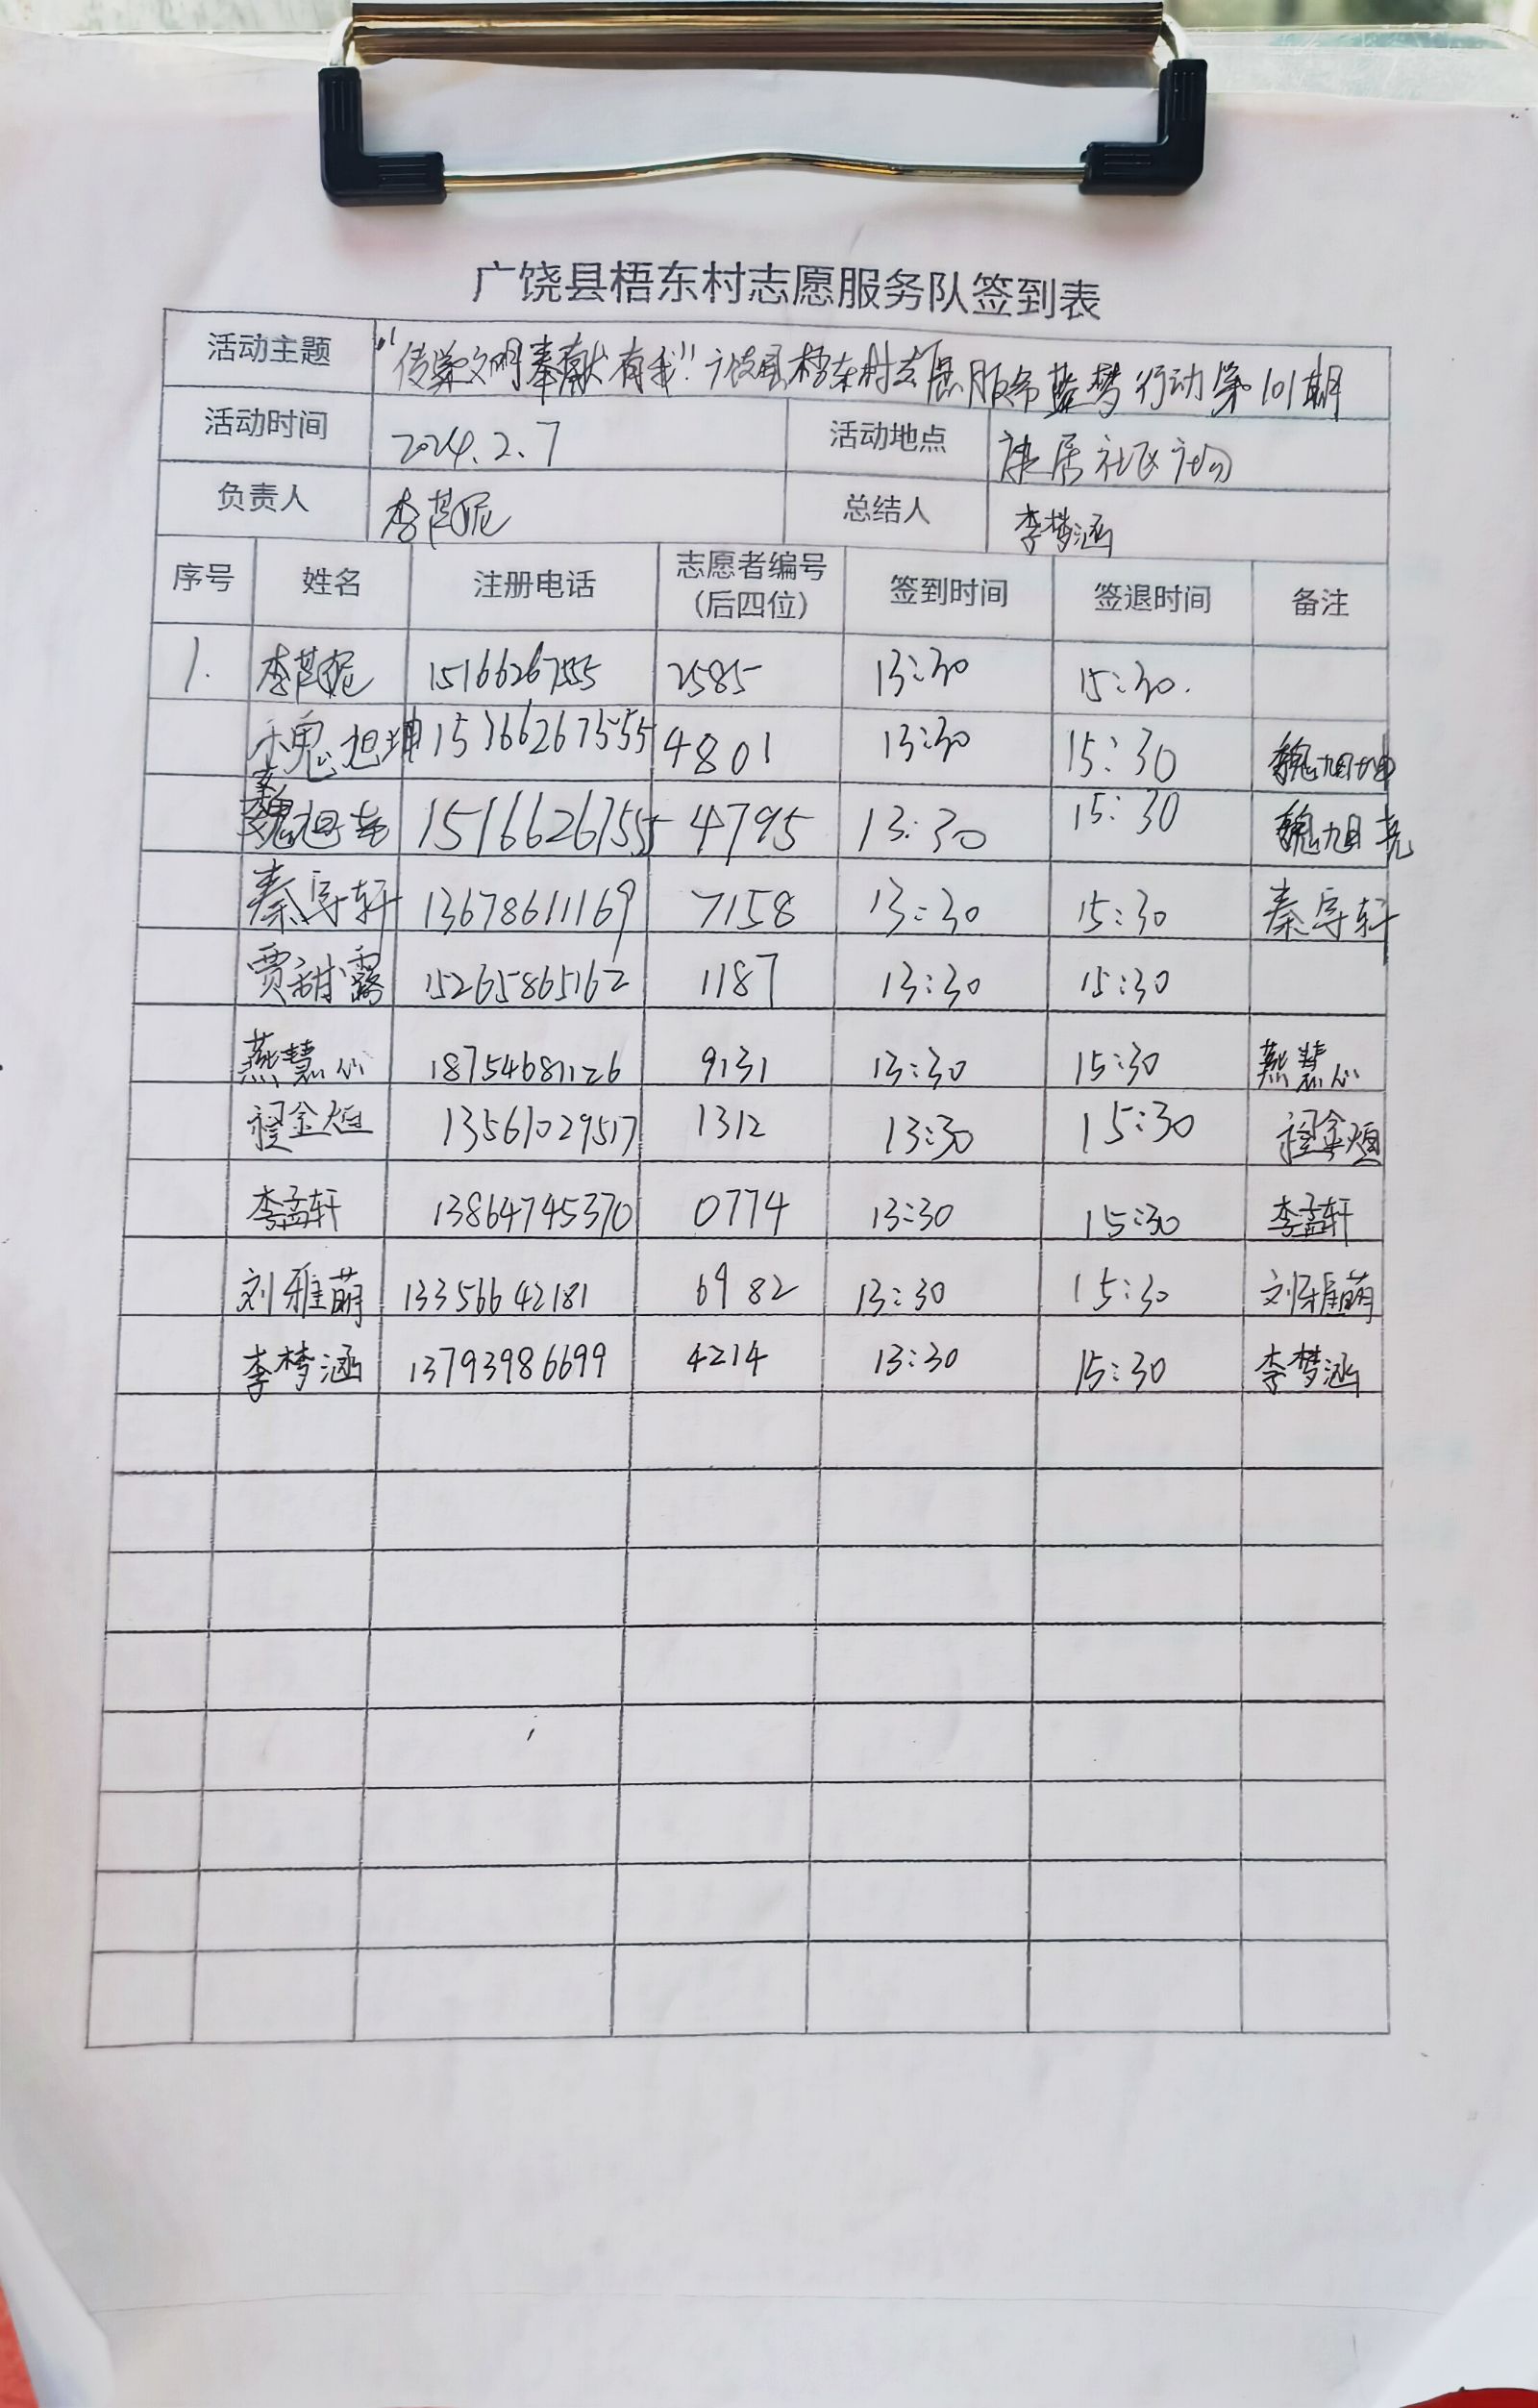 广饶县梧东村志愿服务队签到表
活动主题 "传学文明奉献有我"广饶县梧东村志愿服务蓝梦行动第101期
活动时间 2024.2.7 活动地点 康居社区广场
负责人 李 妮 总结人 李梦涵
序号 姓名 注册电话 志愿者编号（后四位） 签到时间 签退时间 备注
1. 李 妮 15166267555 2585 13:30 15:30.
魏旭坤 15166267555 4801 13:30 15:30 魏旭坤
魏旭尧 15166267555 4795 13:30 15:30 魏旭尧
秦宇轩 13678611169 7158 13:30 15:30 秦宇轩
贾甜露 15265865162 1187 13:30 15:30
燕慧心 18754681126 9131 13:30 15:30 燕慧心
程金烜 13561029517 1312 13:30 15:30 程金烜
李孟轩 13864745370 0774 13:30 15:30 李孟轩
刘雅萌 13356642181 6982 13:30 15:30 刘雅萌
李梦涵 13793986699 4214 13:30 15:30 李梦涵